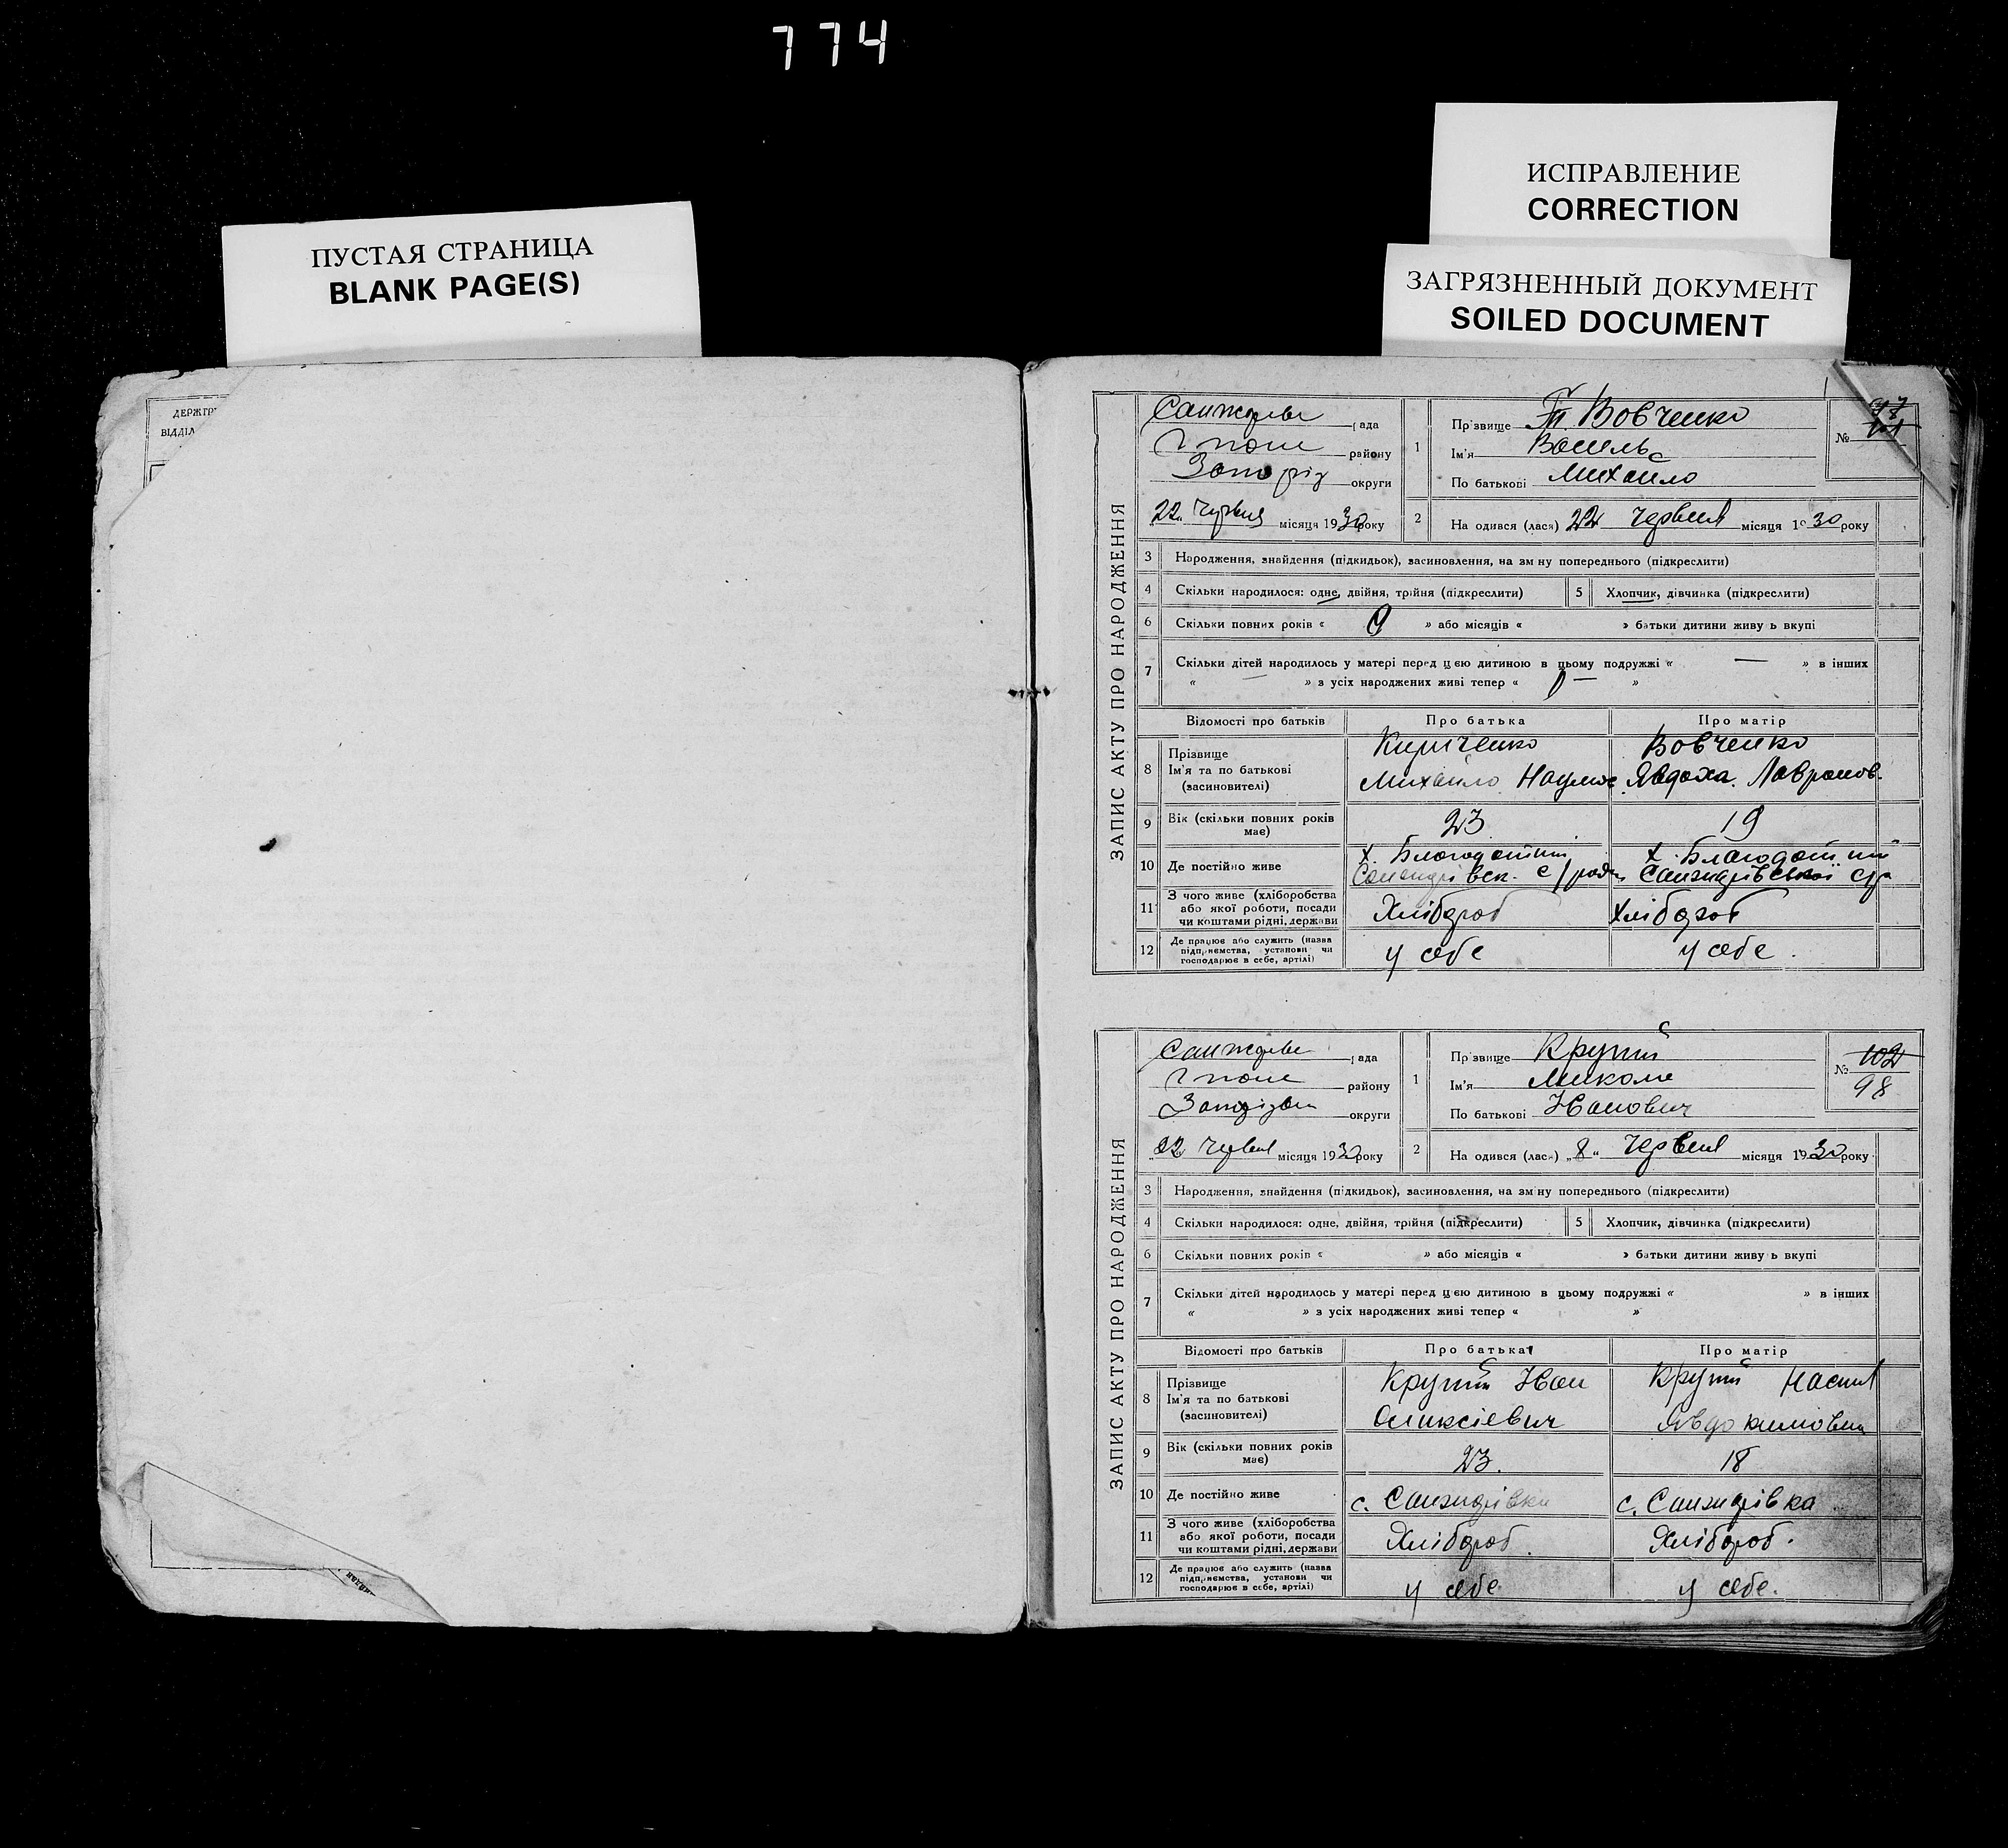 774
ИСПРАВЛЕНИЕ
CORRECTION
ПУСТАЯ СТРАНИЦА
BLANK PAGE(S)
ЗАГРЯЗНЕННЫЙ ДОКУМЕНТ
SOILED DOCUMENT
ДЕРЖТР
ВІДДІЛ
ЗАПИС АКТУ ПРО НАРОДЖЕННЯ
рада
району
округи
22 Червня місяця 1930 року
1 Прізвище Вовченко
Ім'я Василь
По батькові Михайло
№ 97
2 Народився (лася) 22 Червня місяця 1930 року
3 Народження, знайдення (підкидьок), засиновлення, на зміну попереднього (підкреслити)
4 Скільки народилося: одне, двійня, трійня (підкреслити) 5 Хлопчик, дівчинка (підкреслити)
6 Скільки повних років « » або місяців « » батьки дитини живуть вкупі
7 Скільки дітей народилось у матері перед цією дитиною в цьому подружжі « — » в інших
« — » з усіх народжених живі тепер « — »
Відомості про батьків Про батька Про матір
8 Прізвище Вовченко
Ім'я та по батькові Михайло Явдоха
(засиновителі)
9 Вік (скільки повних років має) 23 19
10 Де постійно живе х. х.
11 З чого живе (хліборобства або якої роботи, посади чи коштами рідні, держави Хлібороб Хлібороб
12 Де працює або служить (назва підприємства, установи чи господарює в себе, артілі) у себе у себе.
ЗАПИС АКТУ ПРО НАРОДЖЕННЯ
рада
району
округи
22 Червня місяця 1930 року
1 Прізвище Крупій
Ім'я Микола
По батькові Іванович
№ 102
98
2 Народився (лася) „8" Червня місяця 1930 року
3 Народження, знайдення (підкидьок), засиновлення, на зміну попереднього (підкреслити)
4 Скільки народилося: одне, двійня, трійня (підкреслити) 5 Хлопчик, дівчинка (підкреслити)
6 Скільки повних років « » або місяців « » батьки дитини живуть вкупі
7 Скільки дітей народилось у матері перед цією дитиною в цьому подружжі « » в інших
« » з усіх народжених живі тепер « »
Відомості про батьків Про батька Про матір
8 Прізвище Крупій Іван Крупій
Ім'я та по батькові
(засиновителі) Оликсієвич Явдокимовна
9 Вік (скільки повних років має) 23. 18
10 Де постійно живе с. Санжарівка с. Санжарівка
11 З чого живе (хліборобства або якої роботи, посади чи коштами рідні, держави Хлібороб. Хлібороб.
12 Де працює або служить (назва підприємства, установи чи господарює в себе, артілі) у себе у себе.